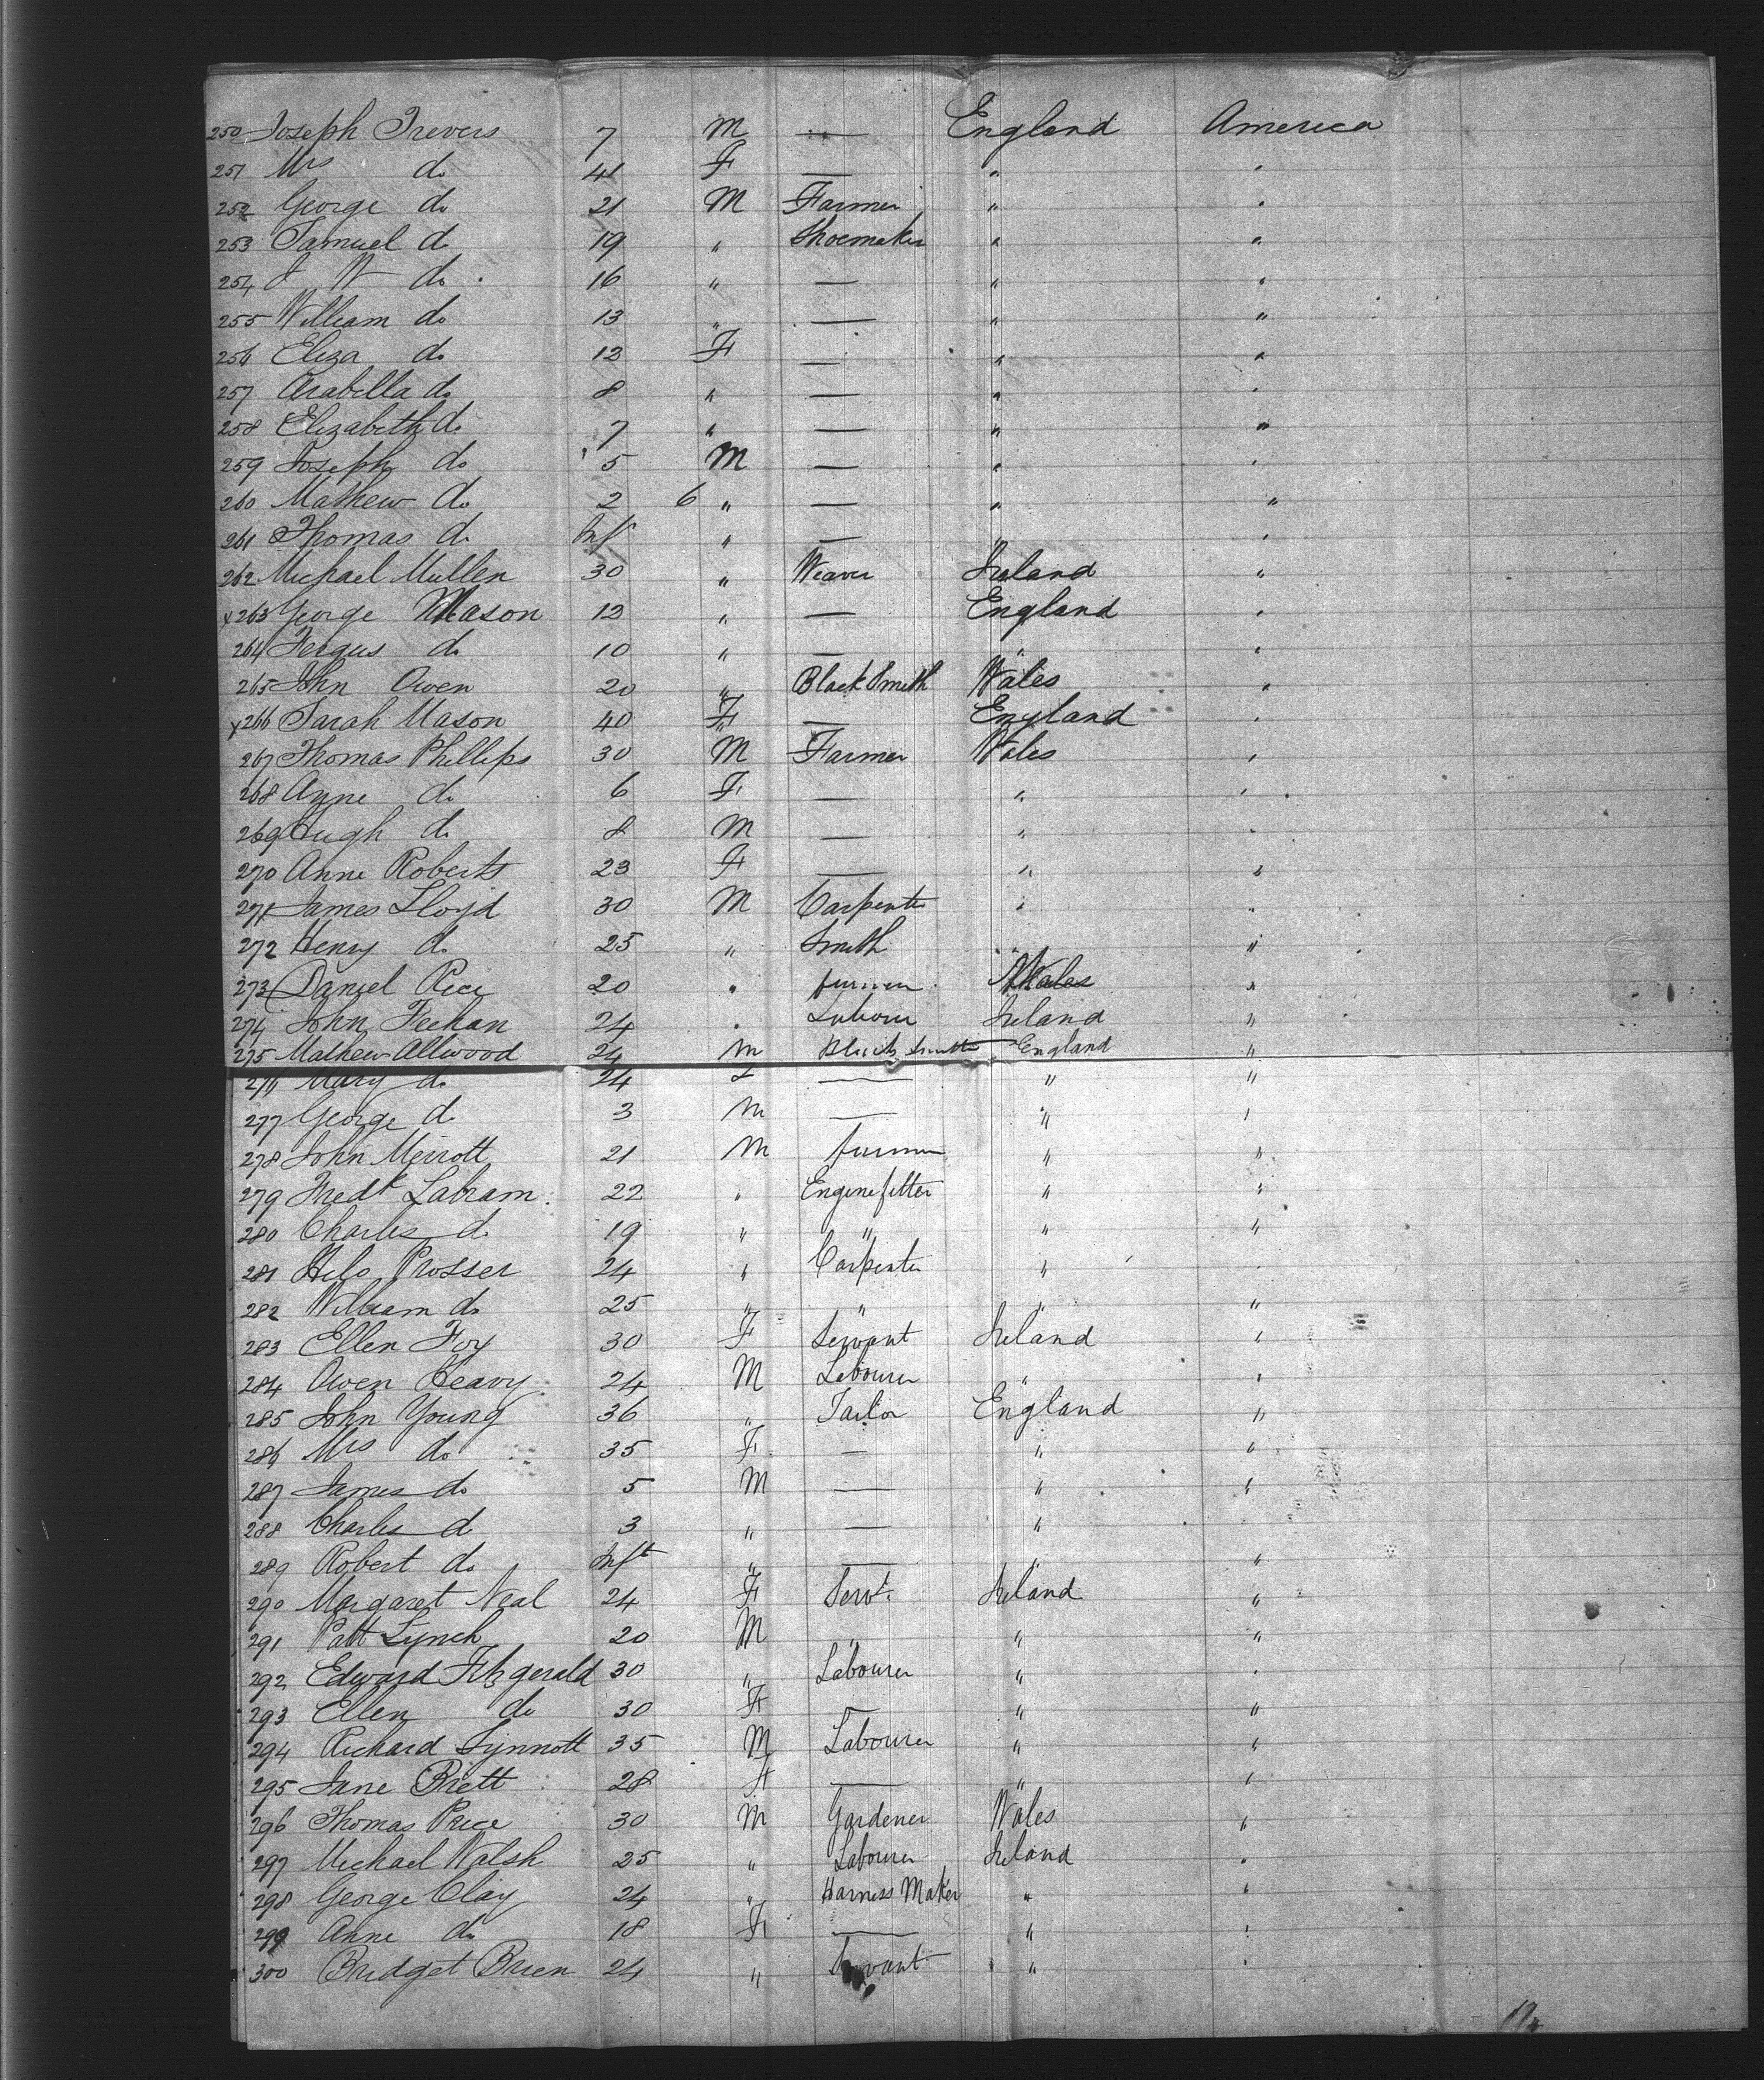 250 Joseph Trevers 7 M — England America
251 Mrs do 41 F — " "
252 George do 21 M Farmer " "
253 Samuel do 19 " Shoemaker " "
254 J W do 16 " — " "
255 William do 13 " — " "
256 Eliza do 12 F — " "
257 Arabella do 8 " — " "
258 Elizabeth do 7 " — " "
259 Joseph do 5 M — " "
260 Mathew do 2 6 " — " "
261 Thomas do Inft " — " "
262 Michael Mullen 30 " Weaver Ireland "
x263 George Mason 12 " — England "
264 Fergus do 10 " — " "
265 John Owen 20 " Black Smith Wales "
x266 Sarah Mason 40 F — England "
267 Thomas Phillips 30 M Farmer Wales "
268 Anne do 6 F — " "
269 Hugh do 8 M — " "
270 Anne Roberts 23 F — " "
271 James Lloyd 30 M Carpenter " "
272 Henry do 25 " Smith " "
273 Daniel Rice 20 " farmer Wales "
274 John Feehan 24 " Labourer Ireland "
275 Mathew Allwood 24 M Black Smith England "
276 Mary do 24 F — " "
277 George do 3 M — " "
278 John Merrott 21 M farmer " "
279 Fredk Labram 22 " Enginefitter " "
280 Charles do 19 " " " "
281 Prosser 24 " Carpenter " "
282 William do 25 " " " "
283 Ellen Foy 30 F Servant Ireland "
284 Owen Heavy 24 M Labourer " "
285 John Young 36 " Tailor England "
286 Mrs do 35 F — " "
287 James do 5 M — " "
288 Charles do 3 " — "
289 Robert do Inft " — " "
290 Margaret Neal 24 F Servt Ireland "
291 Patt Lynch 20 M " " "
292 Edward Fitzgerald 30 " Labourer " "
293 Ellen do 30 F — " "
294 Richard Synnott 35 M Labourer " "
295 Jane Brett 28 F — " "
296 Thomas Price 30 M Gardener Wales "
297 Michael Walsh 25 " Labourer Ireland "
298 George Clay 24 " Harness Maker " "
299 Anne do 18 F — " "
300 Bridget Brien 24 " Servant " "